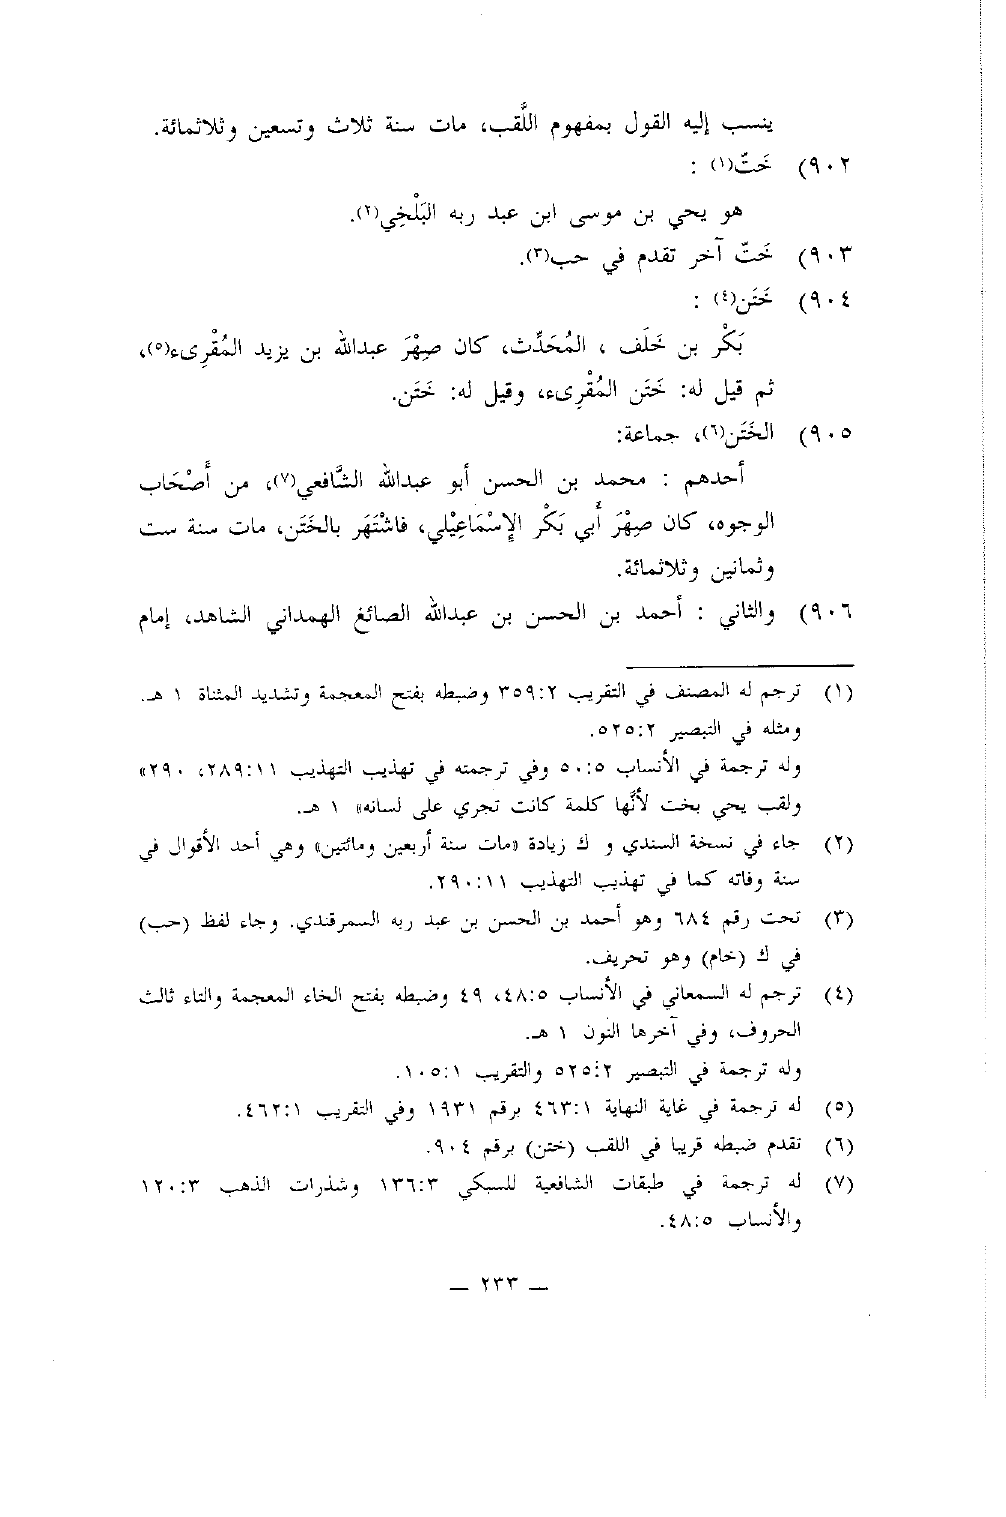 ينسب إليه القول بمفهوم اللَّقب، مات سنة ثلاث وتسعين وثلاثمائة.
٩٠٢) خَتّ(١) :
هو يحي بن موسى ابن عبد ربه البَلْخِي(٢).
٩٠٣) خَتّ آخر تقدم في حب(٣).
٩٠٤) خَتَن(٤) :
بَكْر بن خَلَف ، المُحَدِّث، كان صِهْرَ عبدالله بن يزيد المُقْرِىء(٥)،
ثم قيل له: خَتَن المُقْرِىء، وقيل له: خَتَن.
٩٠٥) الخَتَن(٦)، جماعة:
أحدهم : محمد بن الحسن أبو عبدالله الشَّافعي(٧)، من أَصْحَاب
الوجوه، كان صِهْرَ أَبي بَكْر الإِسْمَاعِيْلي، فاشْتَهَر بالخَتَن، مات سنة ست
وثمانين وثلاثمائة.
٩٠٦) والثاني : أحمد بن الحسن بن عبدالله الصائغ الهمداني الشاهد، إمام
(١) ترجم له المصنف في التقريب ٣٥٩:٢ وضبطه بفتح المعجمة وتشديد المثناة ١ هـ.
ومثله في التبصير ٥٢٥:٢.
وله ترجمة في الأنساب ٥٠:٥ وفي ترجمته في تهذيب التهذيب ٢٨٩:١١، ٢٩٠»
ولقب يحي بخت لأنَّها كلمة كانت تجري على لسانه» ١ هـ.
(٢) جاء في نسخة السندي و ك زيادة «مات سنة أربعين ومائتين» وهي أحد الأقوال في
سنة وفاته كما في تهذيب التهذيب ٢٩٠:١١.
(٣) تحت رقم ٦٨٤ وهو أحمد بن الحسن بن عبد ربه السمرقندي. وجاء لفظ (حب)
في ك (خام) وهو تحريف.
(٤) ترجم له السمعاني في الأنساب ٤٨:٥، ٤٩ وضبطه بفتح الخاء المعجمة والتاء ثالث
الحروف، وفي آخرها النون ١ هـ.
وله ترجمة في التبصير ٥٢٥:٢ والتقريب ١٠٥:١.
(٥) له ترجمة في غاية النهاية ٤٦٣:١ برقم ١٩٣١ وفي التقريب ٤٦٢:١.
(٦) تقدم ضبطه قريبا في اللقب (ختن) برقم ٩٠٤.
(٧) له ترجمة في طبقات الشافعية للسبكي ١٣٦:٣ وشذرات الذهب ١٢٠:٣
والأنساب ٤٨:٥.
— ٢٣٣ —